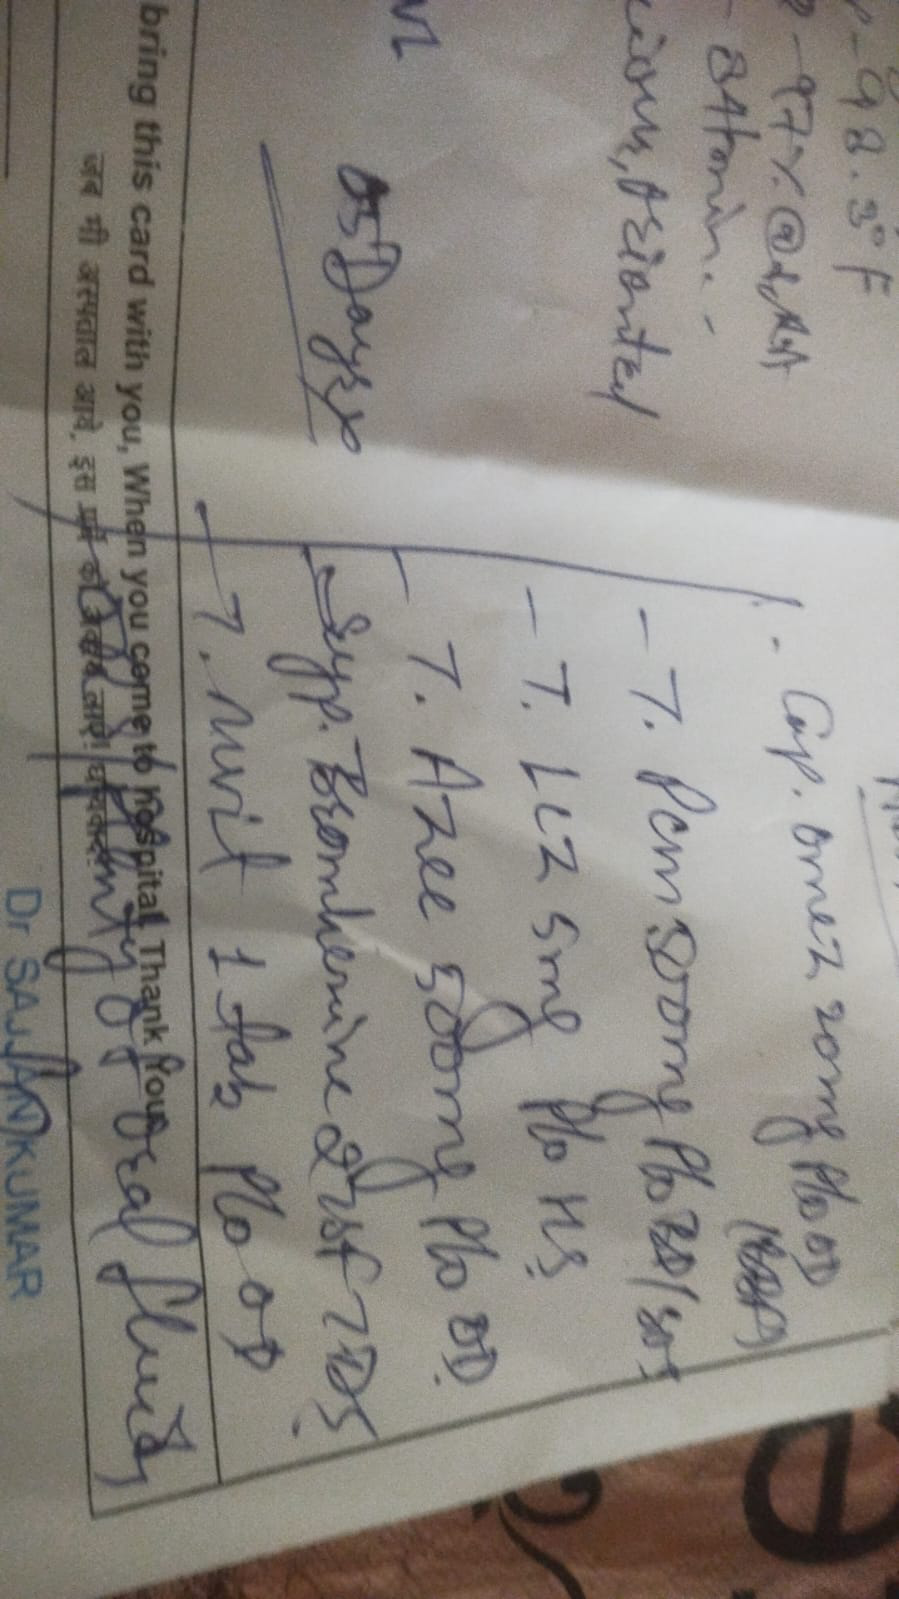 98.3°F
97%@RA
conscious, oriented
05 Days
- Cap. Omez 20mg P/o OD
(BBF)
- T. Pcm 500mg P/o BD/SOS
- T. LCZ 5mg P/o HS
- T. Azee 500mg P/o OD
- Syp. Bromhexine 2tsf TDS
- T. Mvit 1 tab P/o OD
bring this card with you, When you come to hospital. Thank You
जब भी अस्पताल आवें, इस पर्चे को अवश्य लाएं। धन्यवाद!
plenty of oral fluids
Dr SAJAN KUMAR